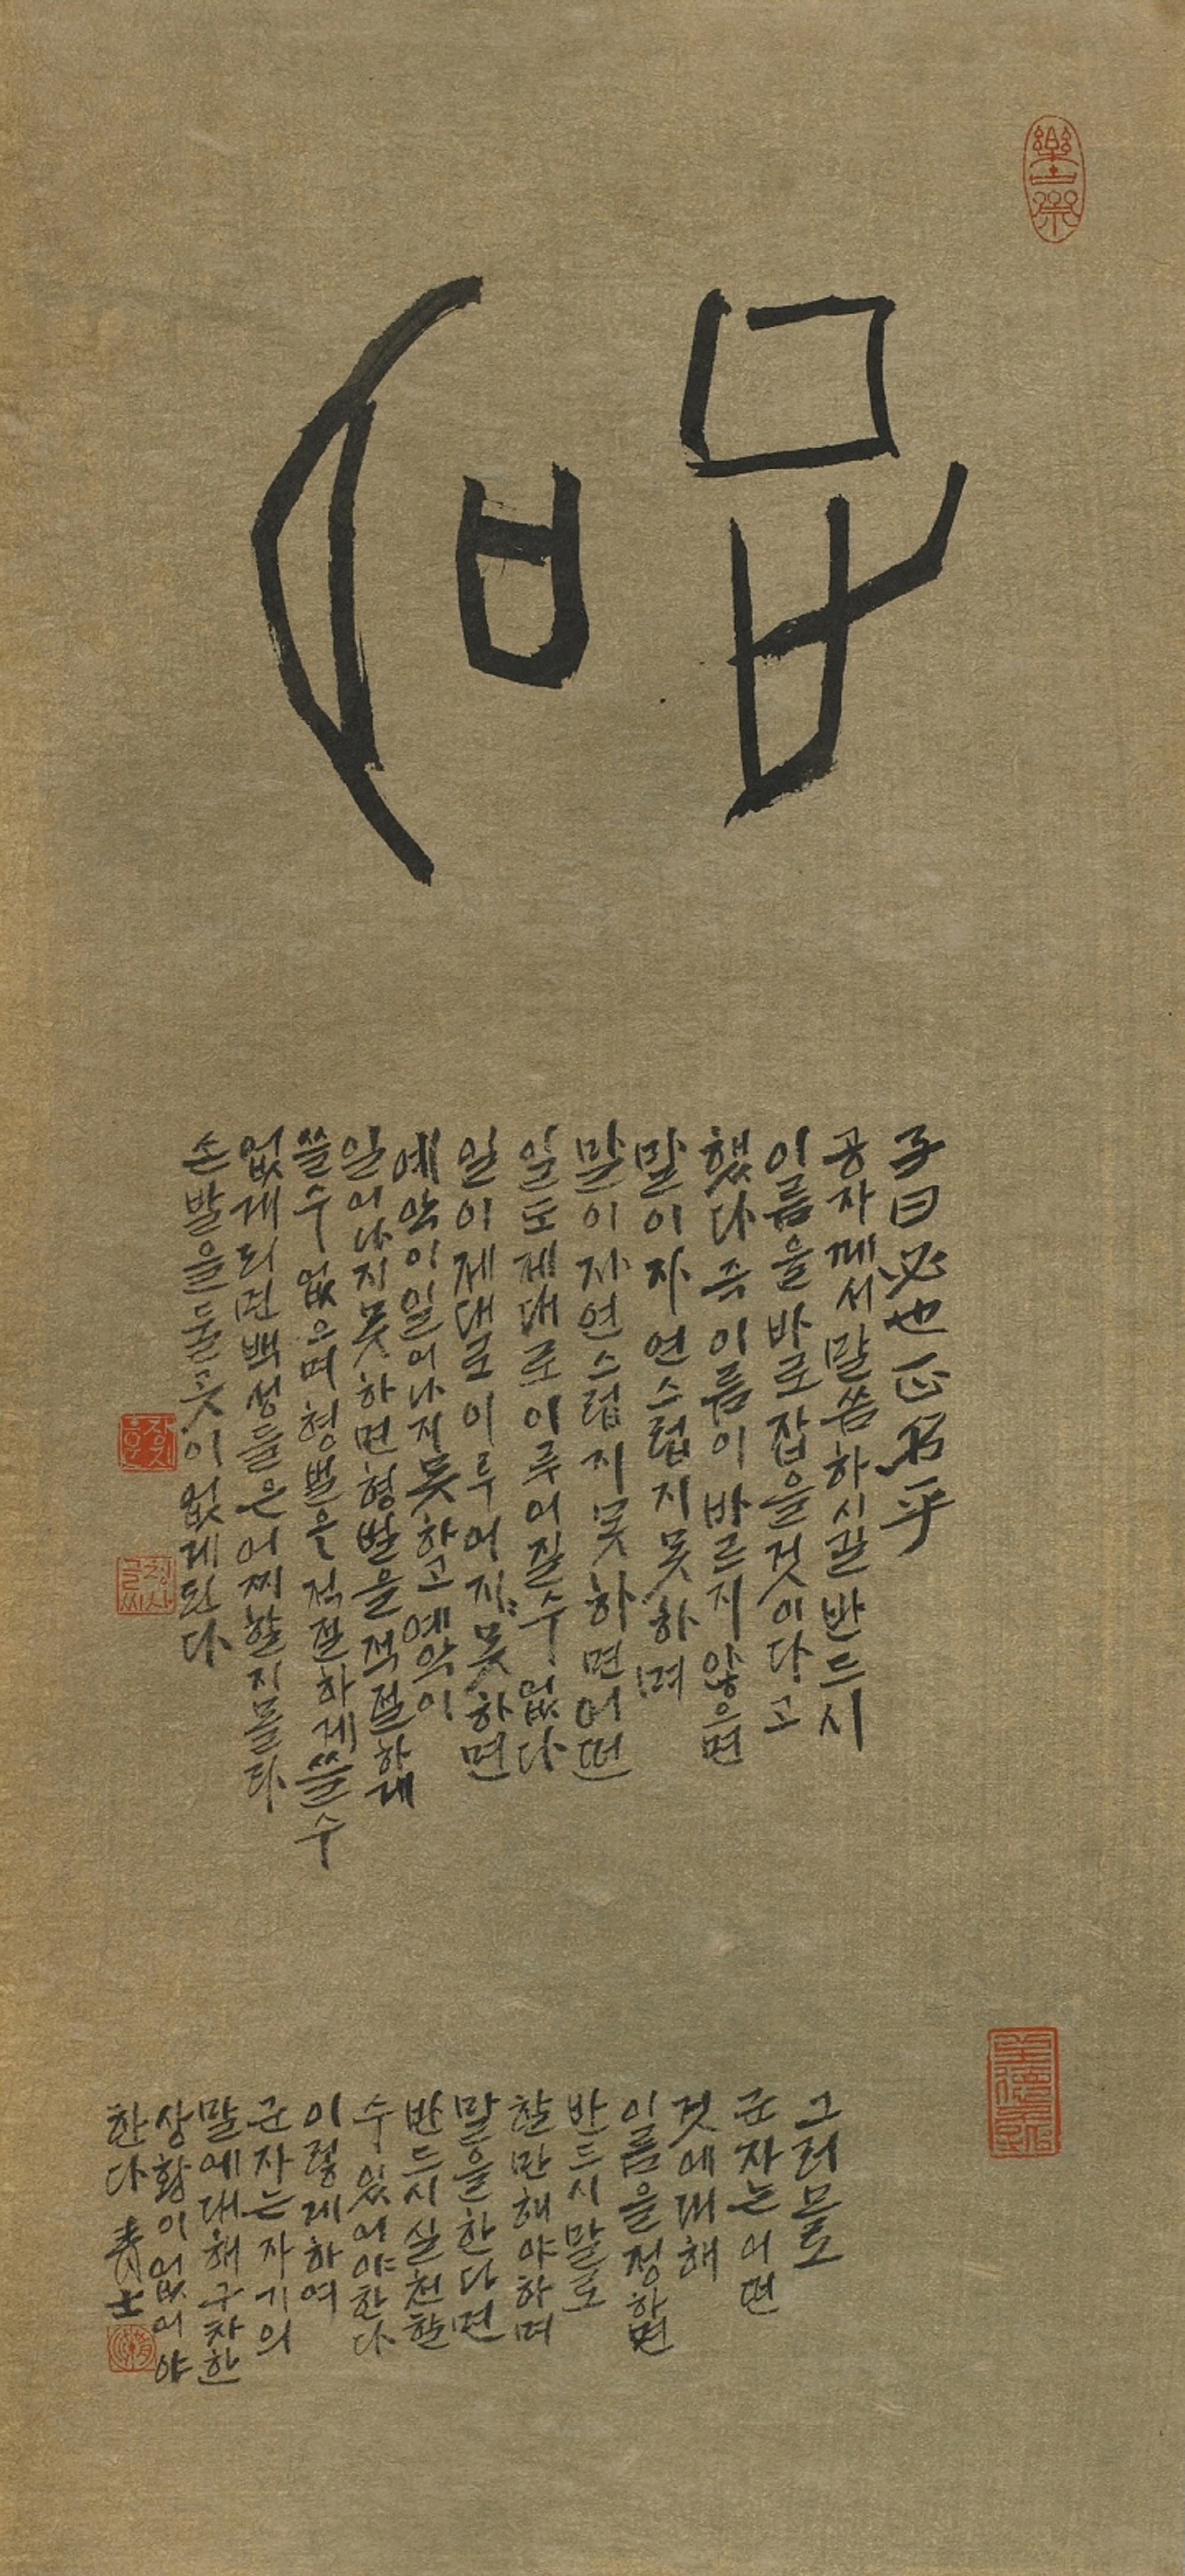 正名
子曰必也正名乎
공자께서말씀하시길반드시
이름을바로잡을것이다고
했다즉이름이바르지않으면
말이자연스럽지못하며
말이자연스럽지못하면어떤
일도제대로이루어질수없다
일이제대로이루어지못하면
예악이일어나지못하고예악이
일어나지못하면형벌을적절하게
쓸수없으며형벌을적절하게쓸수
없게되면백성들은어찌할지몰라
손발을둘곳이없게된다
그러므로
군자는어떤
것에대해
이름을정하면
반드시말로
할만해야하며
말을한다면
반드시실천할
수있어야한다
이렇게하여
군자는자기의
말에대해구차한
상황이없어야
한다 靑士